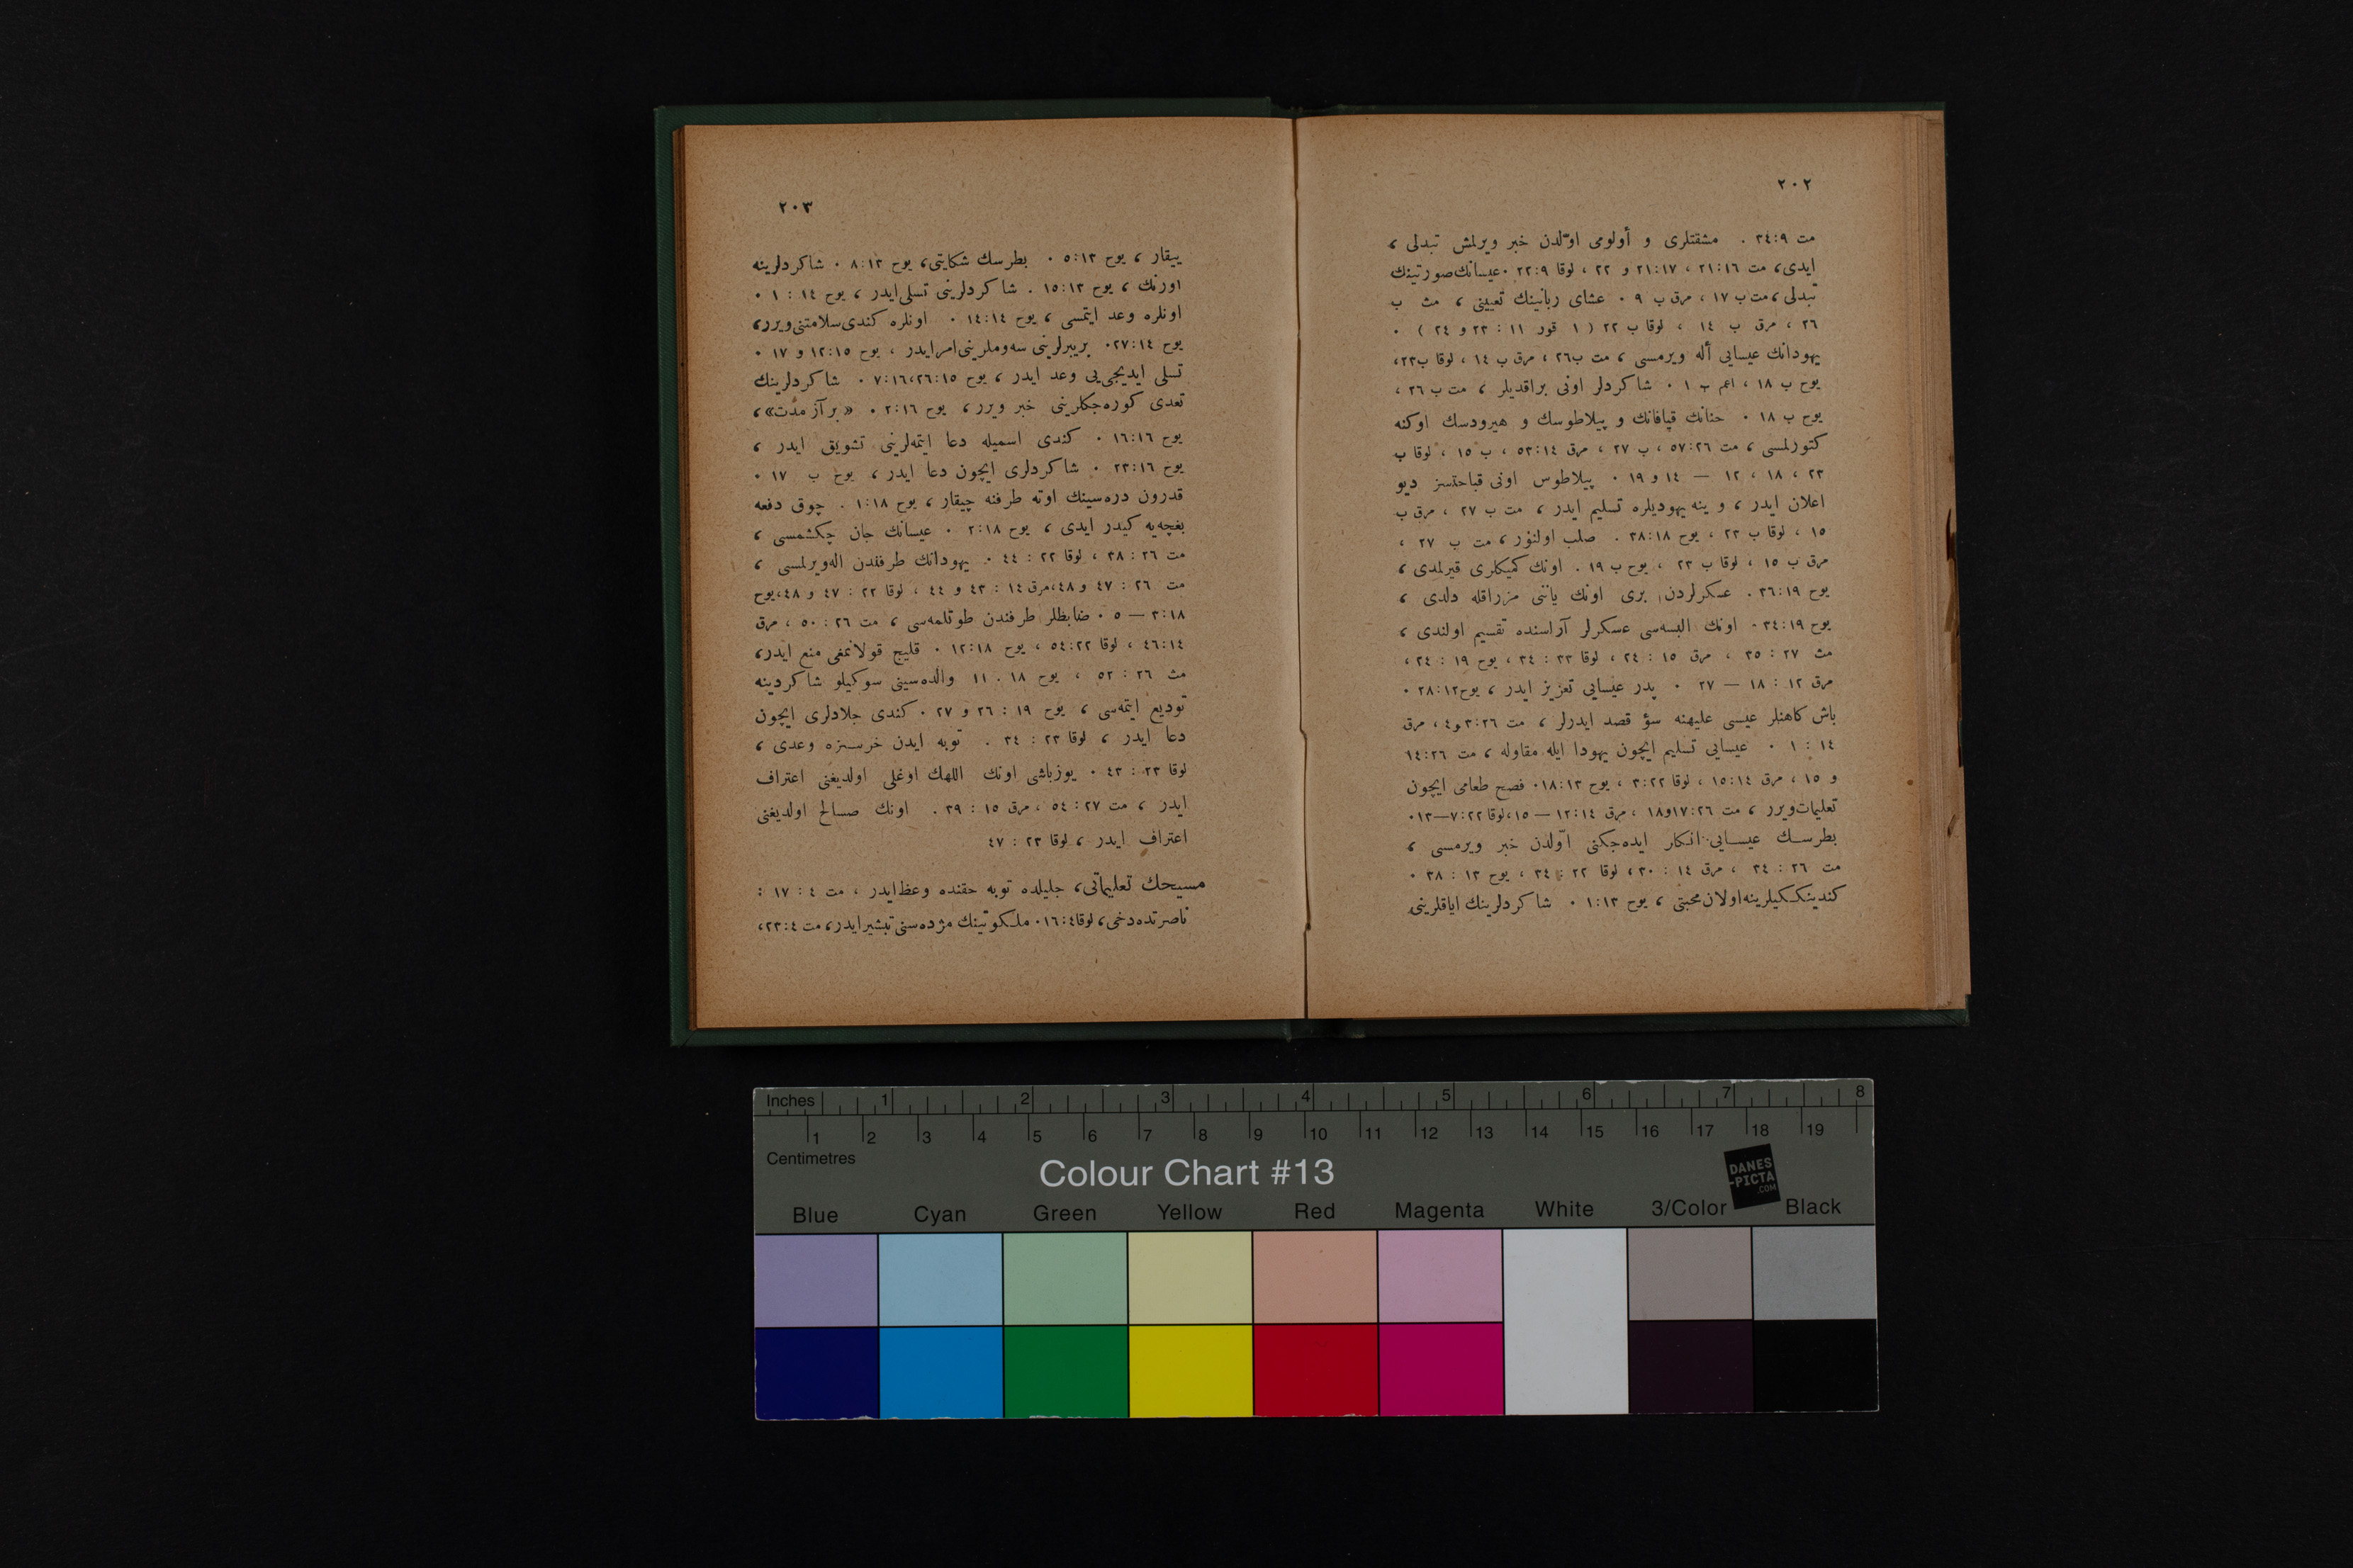 ٢٠٢
مت ٩:٣٤ . مشقتلری و أولومی اوّلدن خبر ویرلمش تبدلی ،
ایدی، مت ١٦:٢١ ، ١٧:٢١ و ٢٢ ، لوقا ٩:٢٢ . عیسانك صورتینك
تبدلی ، مت ب ١٧ ، مرق ب ٩ . عشای ربانینك تعیینی ، مت ب
٢٦ ، مرق ب ١٤ ، لوقا ب ٢٢ ( ١ قور ١١ : ٢٣ و ٢٤ ) .
یهودانك عیسایی أله ویرمسی ، مت ب٢٦ ، مرق ب ١٤ ، لوقا ب٢٢،
یوح ب ١٨ ، اعم ب ١ . شاکردلر اونی براقدیلر ، مت ب ٢٦ ،
یوح ب ١٨ . حنانك قیافانك و پیلاطوسك و هیرودسك اوکنه
کتورلمسی ، مت ٢٦:٥٧ ، ب ٢٧ ، مرق ١٤:٥٣ ، ب ١٥ ، لوقا ب
٢٣ ، ١٨ ، ١٢ — ١٤ و ١٩ . پیلاطوس اونی قباحتسز دیو
اعلان ایدر ، و ینه یهودیلره تسلیم ایدر ، مت ب ٢٧ ، مرق ب
١٥ ، لوقا ب ٢٣ ، یوح ١٨:٣٨ . صلب اولنور ، مت ب ٢٧ ،
مرق ب ١٥ ، لوقا ب ٢٣ ، یوح ب ١٩ . اونك کمیکلری قیرلمدی ،
یوح ١٩:٣٦ . عسکرلردن بری اونك یاننی مزراقله دلدی ،
یوح ١٩:٣٤ . اونك البسه‌سی عسکرلر آراسنده تقسیم اولندی ،
مت ٢٧ : ٣٥ ، مرق ١٥ : ٢٤ ، لوقا ٢٣ : ٣٤ ، یوح ١٩ : ٢٤ ،
مرق ١٢ : ١٨ — ٢٧ . پدر عیسایی تعزیز ایدر ، یوح ١٢:٢٨ .
باش کاهنلر عیسی علیهنه سؤ قصد ایدرلر ، مت ٢٦:٣و٤ ، مرق
١٤ : ١ . عیسایی تسلیم ایچون یهودا ایله مقاوله ، مت ٢٦:١٤
و ١٥ ، مرق ١٤:١٥ ، لوقا ٢٢:٣ ، یوح ١٣:١٨ . فصح طعامی ایچون
تعلیمات ویرر ، مت ٢٦:١٧و١٨ ، مرق ١٤:١٢ — ١٥ ، لوقا ٢٢:٧—١٣ .
بطرسك عیسایی انکار ایده‌جکنی اوّلدن خبر ویرمسی ،
مت ٢٦ : ٣٤ ، مرق ١٤ : ٣٠ ، لوقا ٢٢ : ٣٤ ، یوح ١٣ : ٣٨ .
کندینککیلرینه اولان محبتی ، یوح ١٣:١ . شاکردلرینك ایاقلرینی
٢٠٣
ییقار ، یوح ١٣:٥ . بطرسك شکایتی، یوح ١٣:٨ . شاکردلرینه
اورنك ، یوح ١٣:١٥ . شاکردلرینی تسلی ایدر ، یوح ١٤ : ١ .
اونلره وعد ایتمسی ، یوح ١٤:١٤ . اونلره کندی سلامتنی ویرر،
یوح ١٤:٢٧ . بریبرلرینی سه‌وملرینی امر ایدر ، یوح ١٥:١٢ و ١٧ .
تسلی ایدیجی‌یی وعد ایدر ، یوح ١٥:٢٦،١٦:٧ . شاکردلرینك
تعدی کوره‌جکلرینی خبر ویرر ، یوح ١٦:٢ . «بر آز مدت» ،
یوح ١٦:١٦ . کندی اسمیله دعا ایتمه‌لرینی تشویق ایدر ،
یوح ١٦:٢٣ . شاکردلری ایچون دعا ایدر ، یوح ب ١٧ .
قدرون دره‌سینك اوته طرفنه چیقار ، یوح ١٨:١ . چوق دفعه
بغچه‌یه کیدر ایدی ، یوح ١٨:٢ . عیسانك جان چکشمسی ،
مت ٢٦ : ٣٨ ، لوقا ٢٢ : ٤٤ . یهودانك طرفندن اله ویرلمسی ،
مت ٢٦ : ٤٧ و ٤٨،مرق ١٤ : ٤٣ و ٤٤ ، لوقا ٢٢ : ٤٧ و ٤٨،یوح
١٨:٣ — ٥ . ضابطلر طرفندن طوتلمه‌سی ، مت ٢٦ : ٥٠ ، مرق
١٤:٤٦ ، لوقا ٢٢:٥٤ ، یوح ١٨:١٢ . قلیج قولانمغی منع ایدر،
مت ٢٦ : ٥٢ ، یوح ١٨ . ١١ والده‌سینی سوکیلو شاکردینه
تودیع ایتمه‌سی ، یوح ١٩ : ٢٦ و ٢٧ . کندی جلادلری ایچون
دعا ایدر ، لوقا ٢٣ : ٣٤ . توبه ایدن خرسزه وعدی ،
لوقا ٢٣ : ٤٣ . یوزباشی اونك اللهك اوغلی اولدیغنی اعتراف
ایدر ، مت ٢٧ : ٥٤ ، مرق ١٥ : ٣٩ . اونك صالح اولدیغنی
اعتراف ایدر ، لوقا ٢٣ : ٤٧
مسیحك تعلیماتی، جلیلده توبه حقنده وعظ ایدر ، مت ٤ : ١٧ :
ناصرتده دخی، لوقا٤:١٦ . ملکوتینك مژده‌سنی تبشیر ایدر، مت ٤:٢٣،
Inches 1 2 3 4 5 6 7 8
1 2 3 4 5 6 7 8 9 10 11 12 13 14 15 16 17 18 19
Centimetres
Colour Chart #13
DANES
-PICTA
.COM
Blue Cyan Green Yellow Red Magenta White 3/Color Black